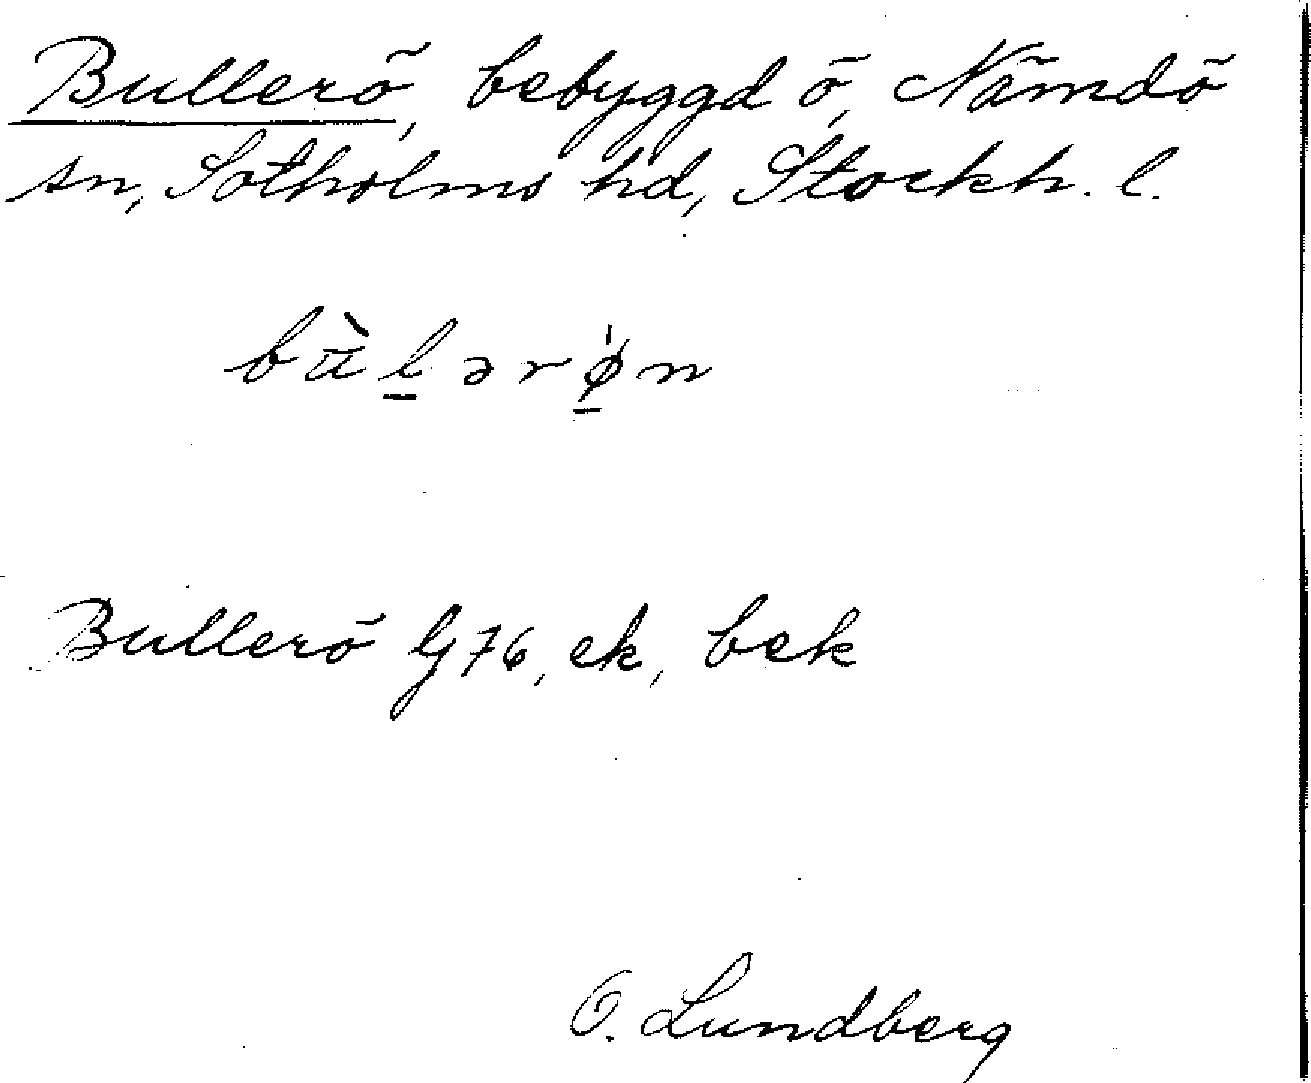 Bullerö, bebyggd ö, Nämdö
sn, Sotholms hd, Stockh. l.
bùlərøn
Bullerö Gj 76, ek, bek
O. Lundberg